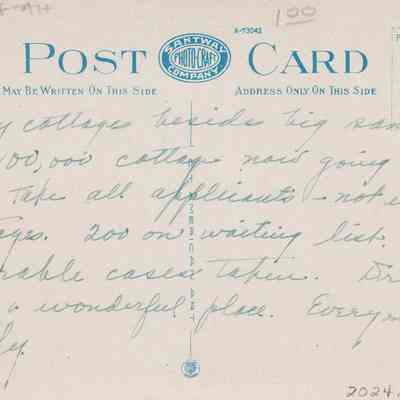 1.00
A-73042
POST CARD
SANTWAY
PHOTO-CRAFT
COMPANY
MAY BE WRITTEN ON THIS SIDE
ADDRESS ONLY ON THIS SIDE
cottages beside big
100,000 cottage now going
take all applicants - not
200 on waiting list.
cases taken. Dr
a wonderful place. Every
2024.